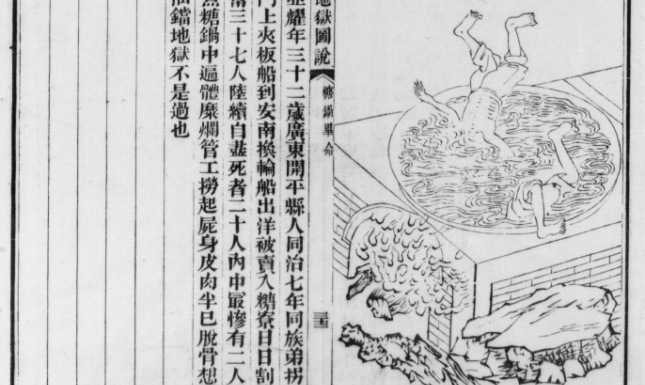 地獄圖說 糖鍋畢命
耀年三十二歲廣東開平縣人同治七年同族弟拐
門上夾板船到安南換輪船出洋被賣入糖寮日日割
三十七人陸續自盡死者二十人內中最慘有二人
糖鍋中遍體糜爛管工撈起屍身皮肉半已脫骨想
油鐺地獄不是過也